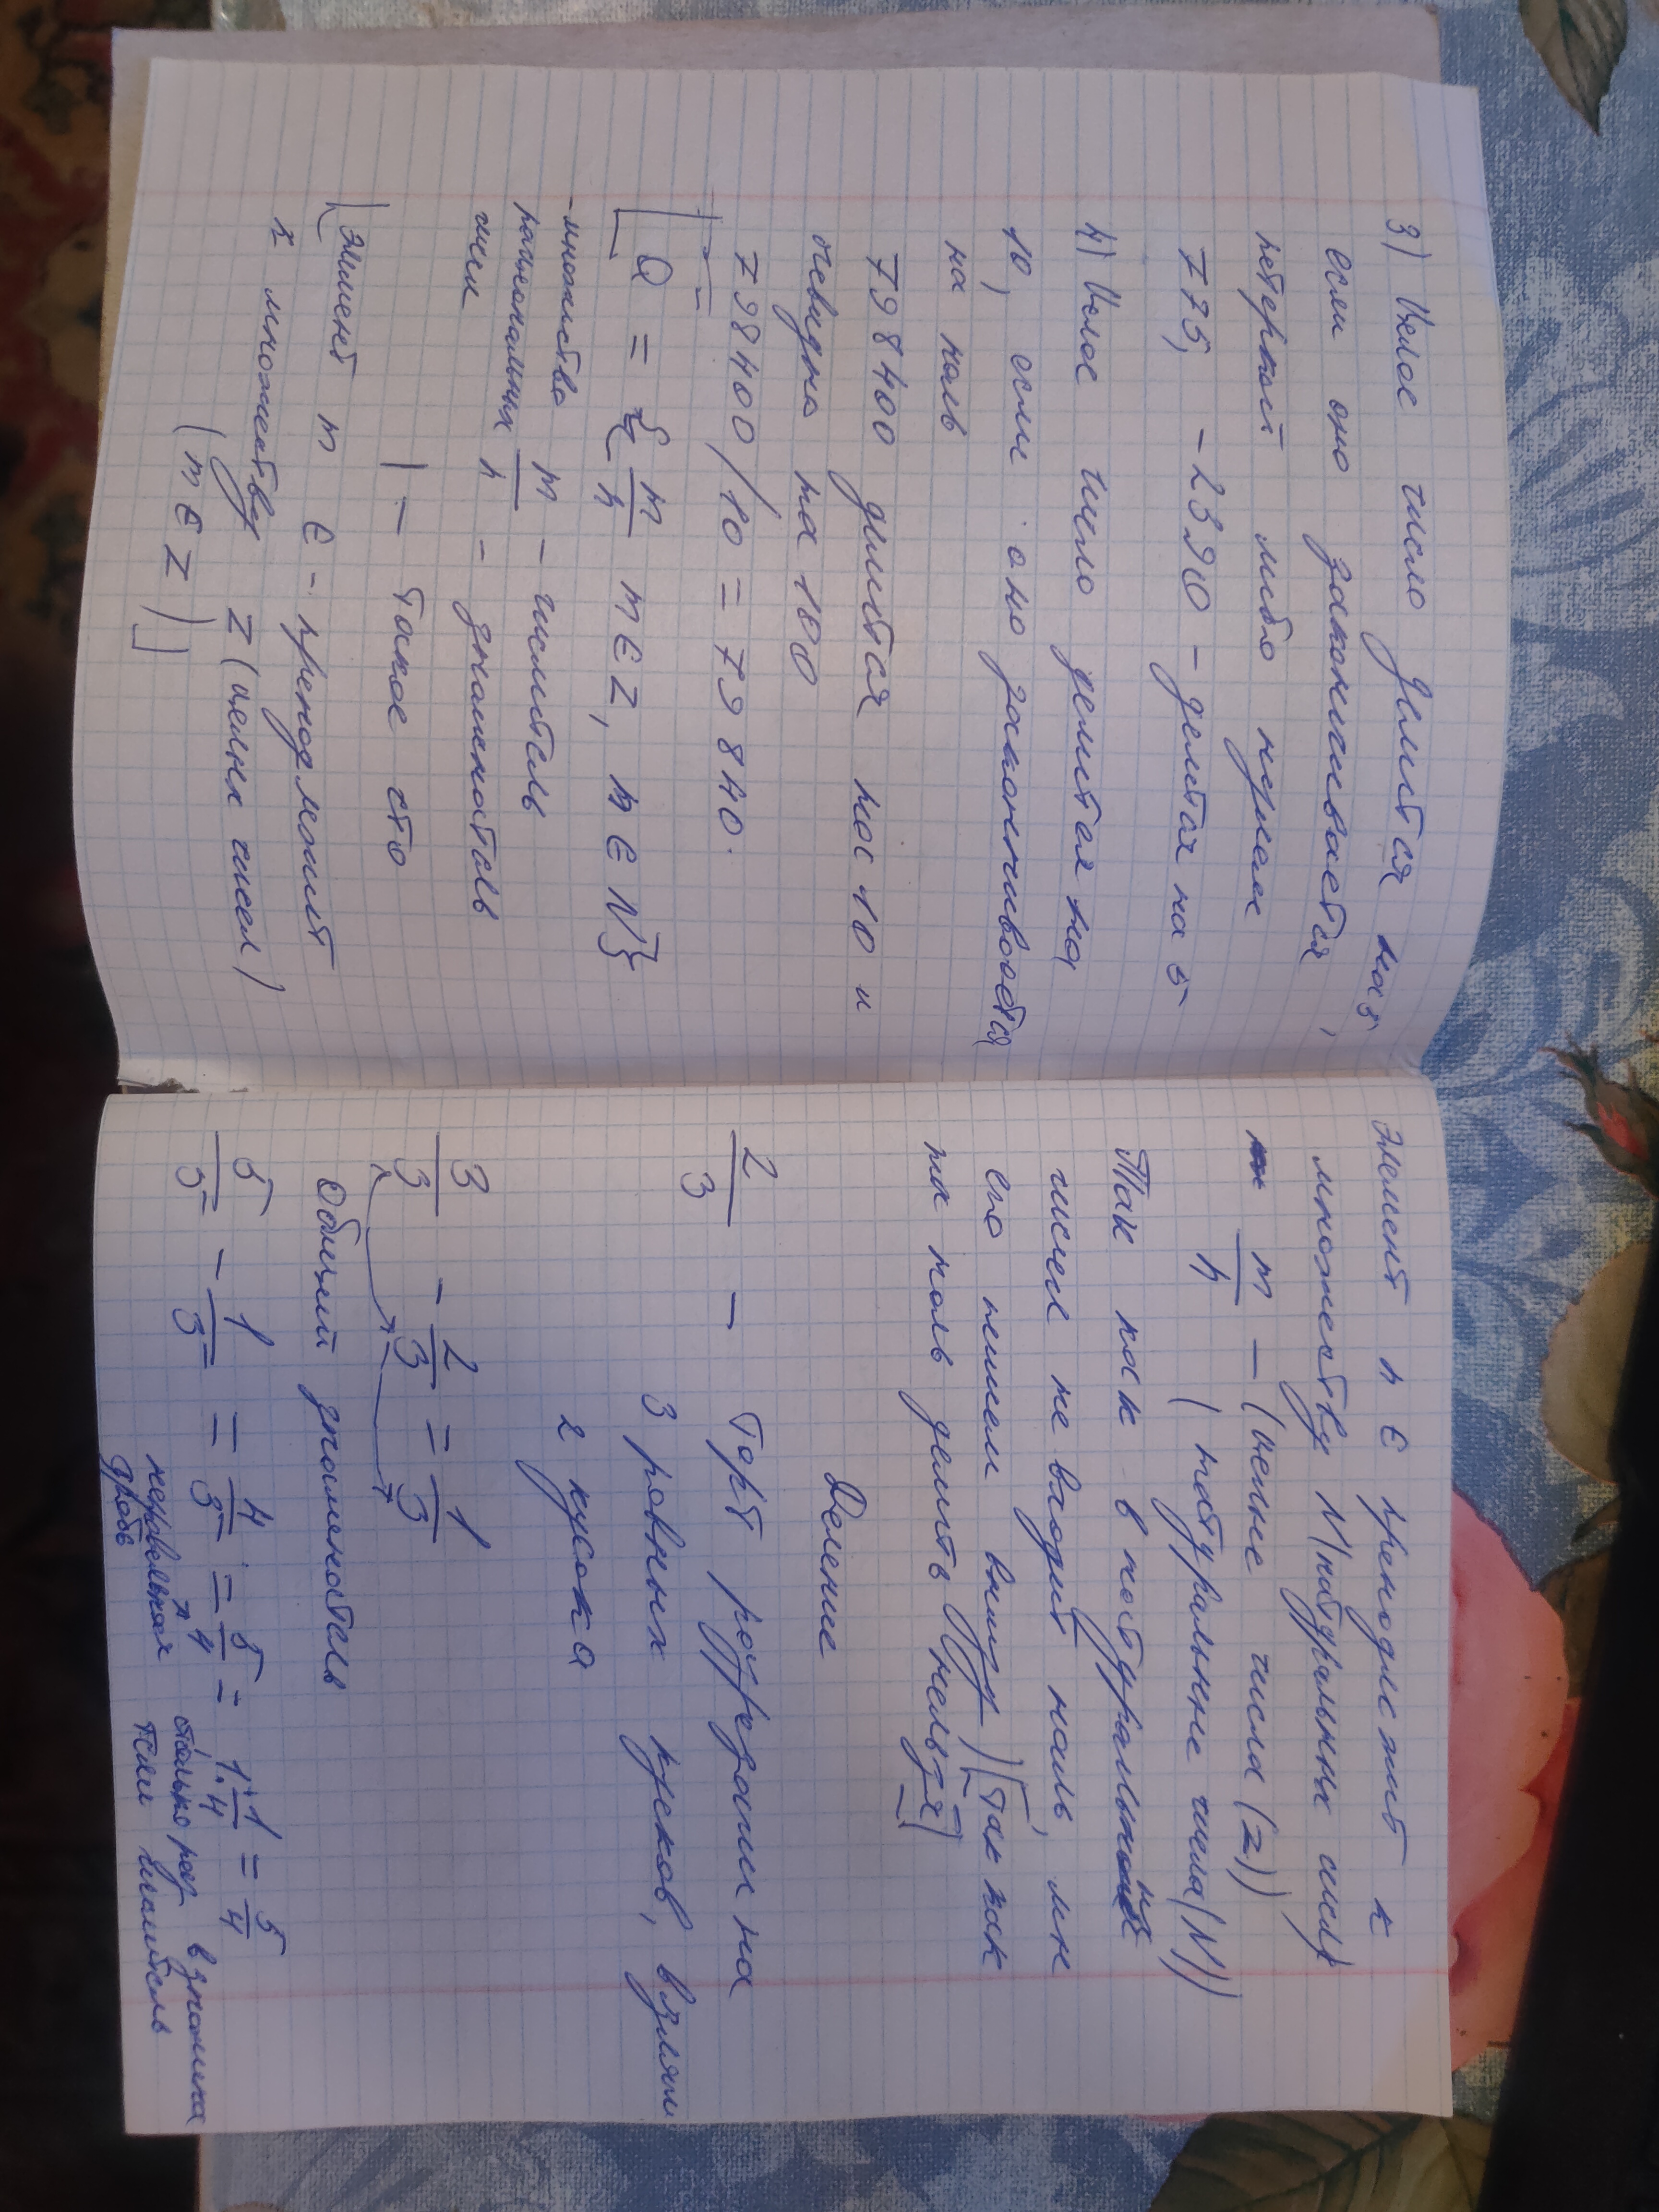 3) Целое число делится на 5,
если оно заканчивается
пятеркой либо нулем
775, -2390 - делится на 5
4) Целое число делится на
10, если оно заканчивается
на ноль
798400 делится на 10 и
очевидно на 100
798400/10 = 79840.
Q = { m/n m ∈ Z, n ∈ N }
- множество
рациональных
чисел
m - числитель
n - знаменатель
| - такое что
(элемент m ∈ - принадлежит
к множеству Z (целых чисел)
(m ∈ Z)]
элемент n ∈ принадлежит к
множеству N (натуральных чисел)
m/n - (целые числа (Z))
(натуральные числа (N))
Так как в натуральные
числа не входит ноль, мы
его пишем внизу) [так как
на ноль делить нельзя]
Деление
2/3 - Торт разрезали на
3 ровных кусков, взяли
2 куска
3/3 - 2/3 = 1/3
Общий знаменатель
5/3 - 1/3 = 4/3 = 5/4 = 1 1/4 = 5/4
неправильная
дробь
столько раз в знамена
теле числитель